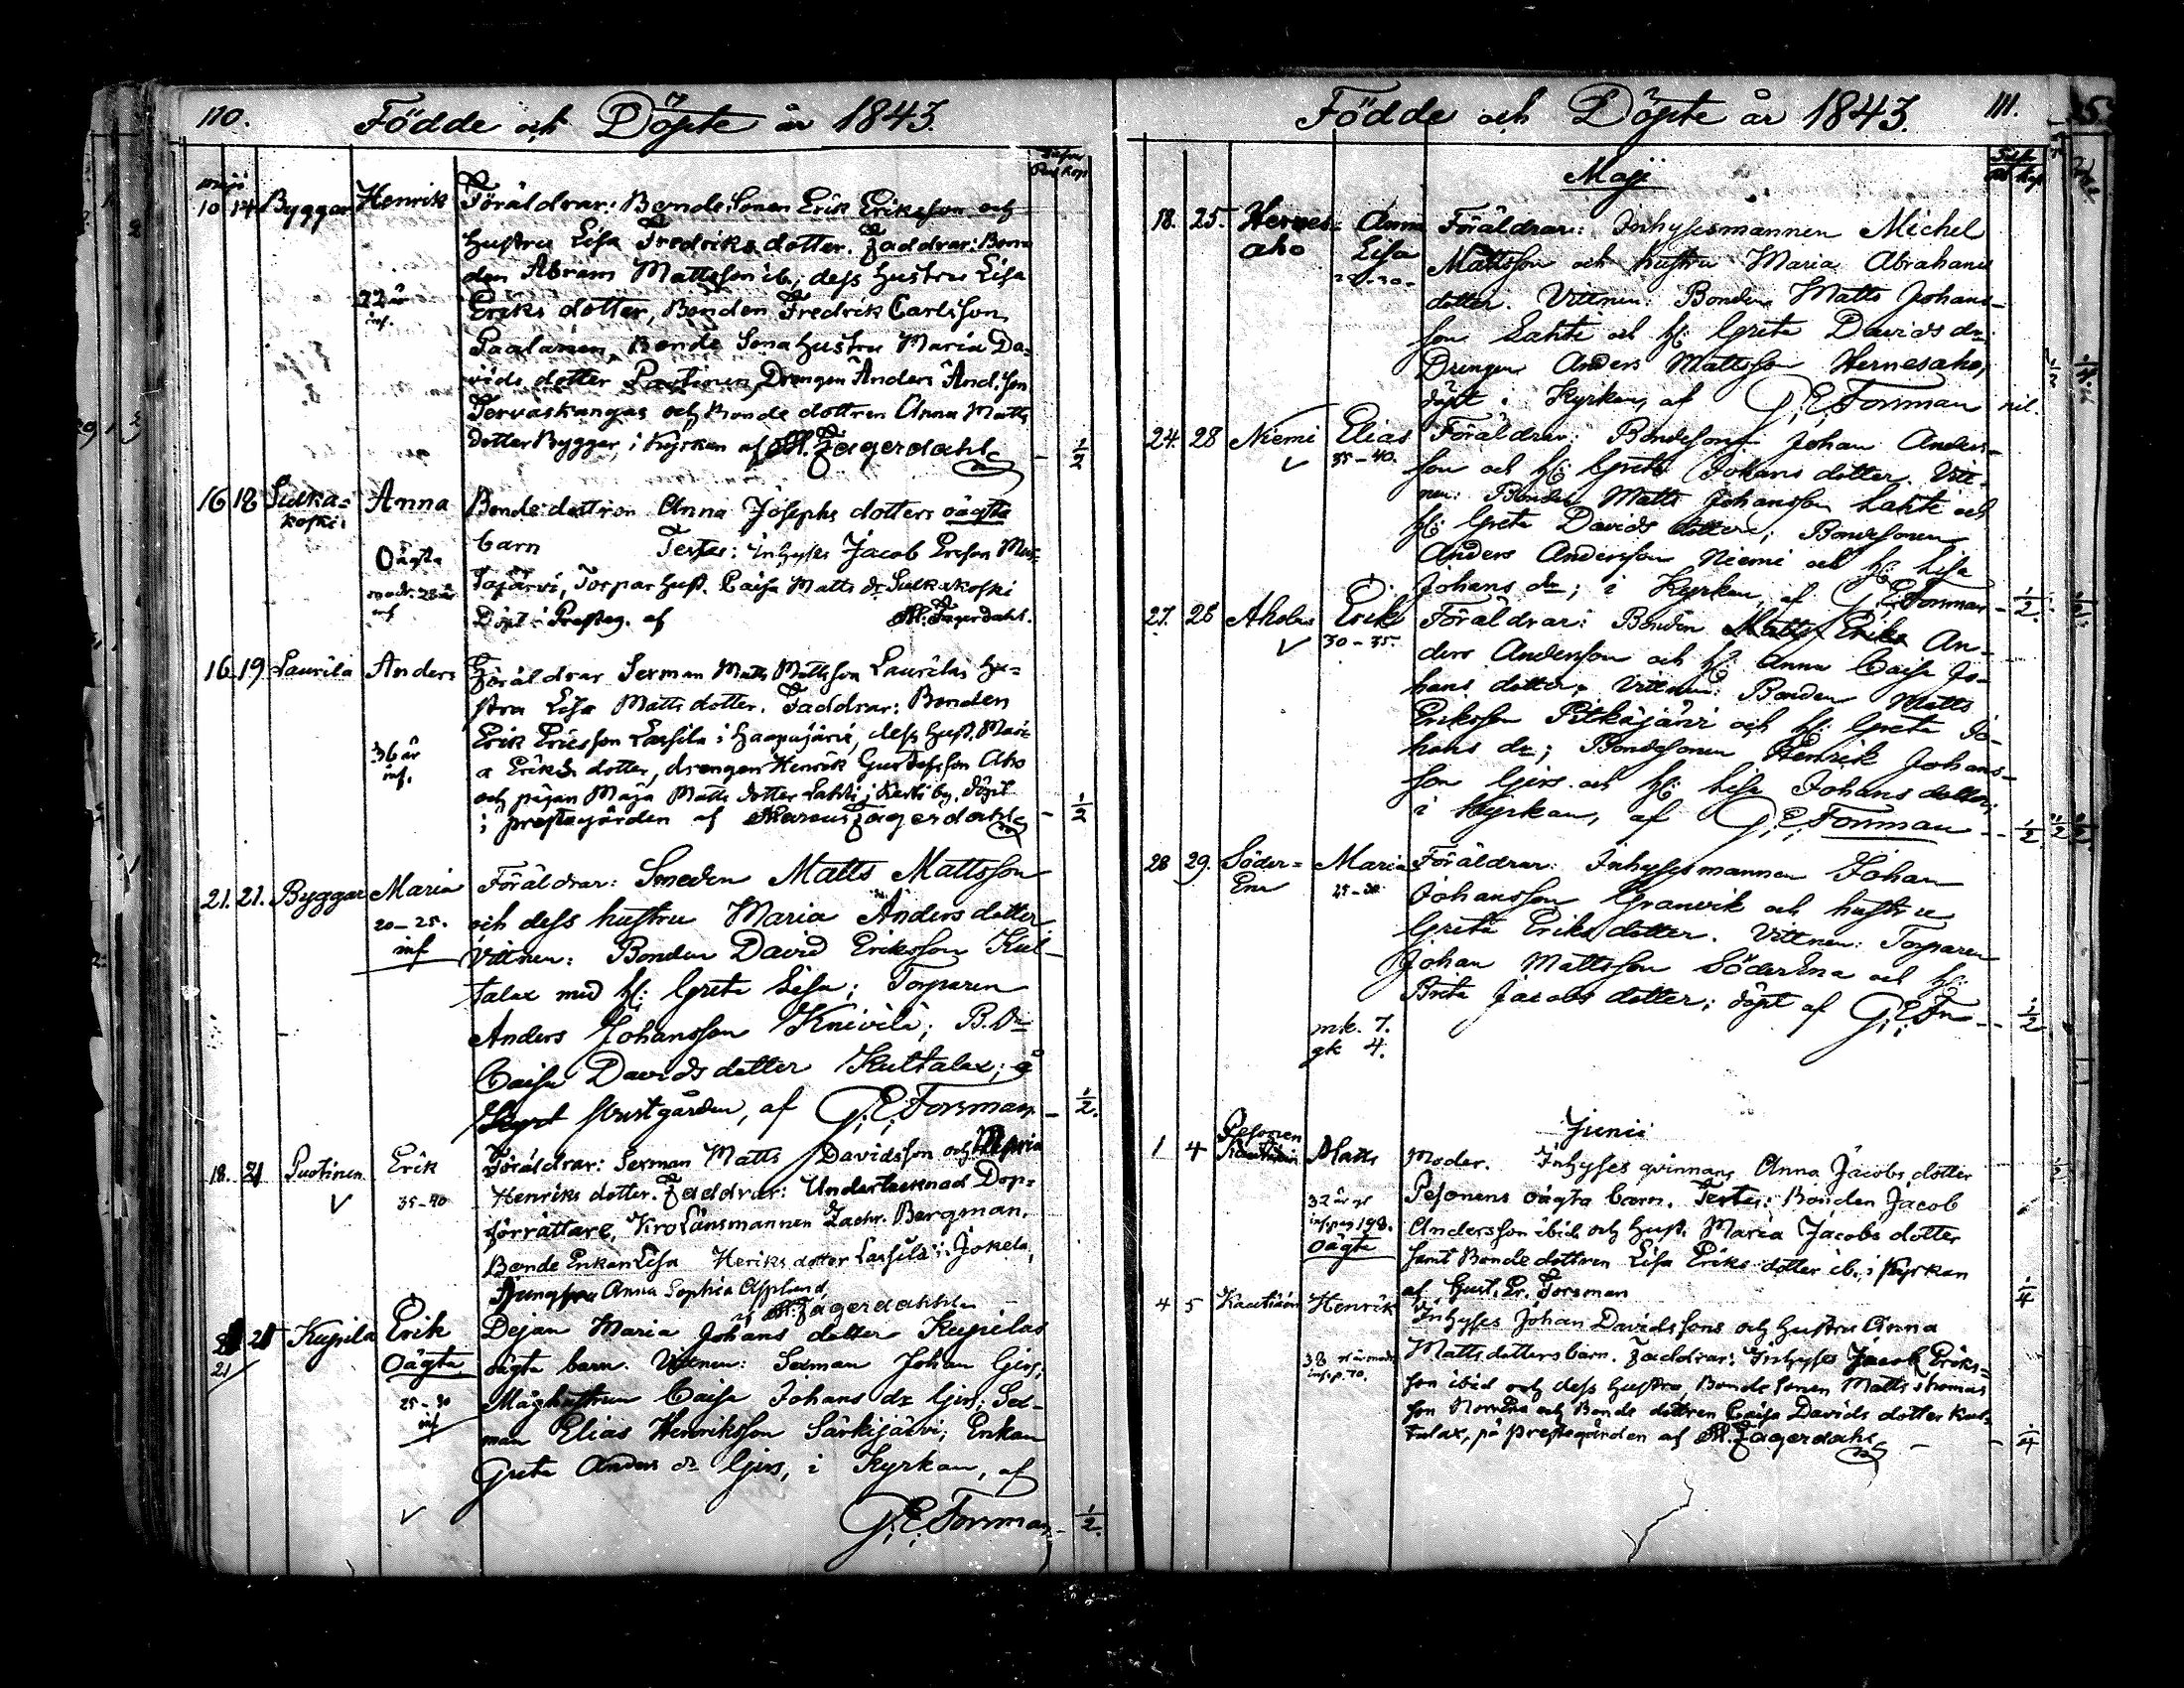 110.
Födde och Döpte år 1843.
Maji
10 14 Byggar Henrik Föräldrar: Bonde Sonen Erik Eriksson och
hustru Lisa Fredriks dotter. Faddrar: Bon-
den Abram Mattsson ib., dess hustru Lisa
22 år
inf.
Eriks dotter, Bonden Fredrik Carlsson
Paalanen, Bonde Sona hustru Maria Da-
vids dotter Drengen Anders And.son
Tervaskangas och Bonde dottren Anna Matts
dotter Byggar, i Kyrkan af M. Fagerdahl
1/2
16 18 Sulka-
koski
Anna Bonde dottren Anna Josephs dotters oägta
barn Testes: Inhyses Jacob Ersson Mus-
Oägta
tajärvi, Torpar hust. Caisa Matts dr Sulkakoski
modr. 28 år
inf
Döpt i Presteg. af M. Fagerdahl.
16 19 Laurila Anders Föräldrar Sexman Matts Mattsson Laurilas hu-
stru Lisa Matts dotter. Faddrar: Bonden
Erik Ericsson Lassila i Haapajärvi, dess hust. Mari-
36 år
inf.
a Eriks dotter, drengen Henrik Gustafsson Aho
och pigan Maja Matts dotter Lahti i by. döpt
i prestegården af Marcus Fagerdahl
1/2
21. 21. Byggar Maria Föräldrar: Smeden Matts Mattsson
20-25.
inf
och dess hustru Maria Anders dotter
Vittnen: Bonden David Eriksson Kul-
talax med h: Greta Lisa; Torparen
Anders Johansson Knivilä; B. Dr
Caisa Davids dotter Kultalax; å
gården, af G. E. Forsman
1/2.
18. 21 Puotinen Erik Föräldrar: Sexman Matts Davidsson och Maria
35-40
Henriks dotter. Faddrar: Undertecknad Dop-
förrättare, KroLänsmannen Zachr. Bergman,
Bonde Enkan Lisa Heriks dotter Lassila i Jokela,
Jungfru Anna Sophia Asplund,
af M. Fagerdahl
21 Kupila Erik Dejan Maria Johans dotter Kupilas
21
Oägta
oägta barn. Vittnen: Sexman Johan Girs,
25-30
inf
Måghustrun Caisa Johans dr Girs; Sex-
man Elias Henriksson Särkijärvi; Enkan
Greta Anders dr Girs, i Kyrkan, af
G. E. Forsman
1/2.
Födde och Döpte år 1843.
111.
Maji
18. 25. Hernes-
aho
Anna
Lisa
Föräldrar: Inhysesmannen Michel
Mattsson och hustru Maria Abrahams
dotter. Vittnen: Bonden Matts Johans-
son Lahti och h: Greta Davids dr
Drengen Anders Mattsson Hernesaho,
döpt i Kyrkan, af G. E. Forsman nil.
24. 28 Niemi Elias Föräldrar: Bondesonen Johan Anders-
35-40.
son och h: Greta Johans dotter. Vitt-
nen: Bonden Matts Johansson Lahti och
h: Greta Davids dotter; Bondesonen
Anders Andersson Niemi och h: Lisa
Johans dr; i Kyrkan, af G. E. Forsman
1/2
27. 28 Ahola Erik Föräldrar: Bonden An-
30-35.
ders Andersson och h: Anna Caisa Jo-
hans dotter. Vittnen: Bonden Matts
Eriksson Pitkäjärvi och h: Greta Jo-
hans dr; Bondesonen Henrik Johans-
son Girs och h: Lisa Johans dotter;
i Kyrkan, af G. E. Forsman
1/2
28 29. Söder-
Ena
Maria Föräldrar: Inhysesmannen Johan
25-30
Johansson Granvik och hustru
Greta Eriks dotter. Vittnen: Torparen
Johan Mattsson SöderEna och h:
Brita Jacobs dotter; döpt af G. E. Fn
1/2
mk. 7.
qk 4.
Junii
1 4 Pesonen
Matts Moder. Inhyses qvinnans Anna Jacobs dotter
32 år gl
inf. pag 198.
Oägta
Pesonens oägta barn. Testes: Bonden Jacob
Andersson ibid. och hust. Maria Jacobs dotter
samt Bonde dottren Lisa Eriks dotter ib., i Kyrkan
af Gust. Er. Forsman
1/4
4 5 Kautiain Henrik Inhyses Johan Davidssons och hustru Anna
Matts dotters barn. Faddrar: Inhyses Jacob Eriks-
son ibid och dess hustru, Bonde sonen Matts Thomas
son NorrEna och Bonde dottren Caisa Davids dotter Kul-
talax, på prestegården af M. Fagerdahl
1/4